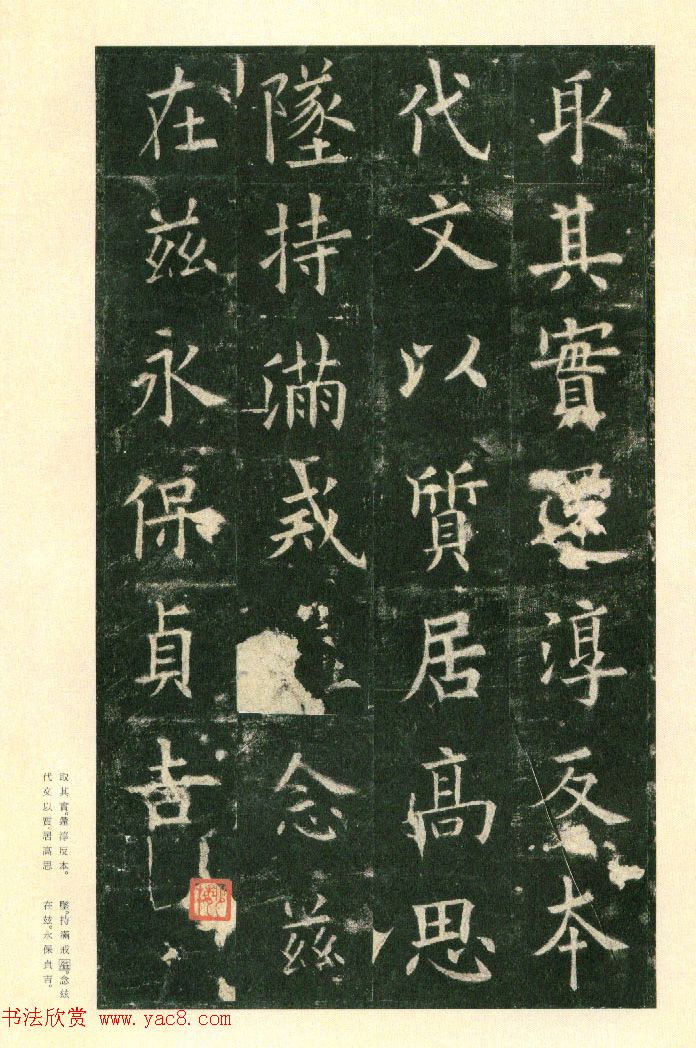 取其實還淳反本
代文以質居高思
墜持滿戒念兹
在兹永保貞吉
取其實。還淳反本。
代文以質。居高思
墜。持滿戒。念兹
在兹。永保貞吉。
书法欣赏 www.yac8.com